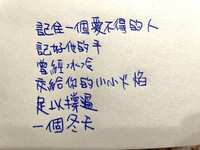 記住一個愛不得的人
記好他的手
曾經冰冷
交給你的小小火焰
足以撐過
一個冬天